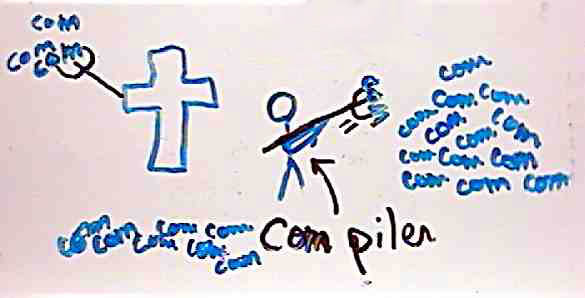 com
com
com
com
com
com com com
com com com
com com
com com com
com com com
com com com
com com com com
com
Com piler